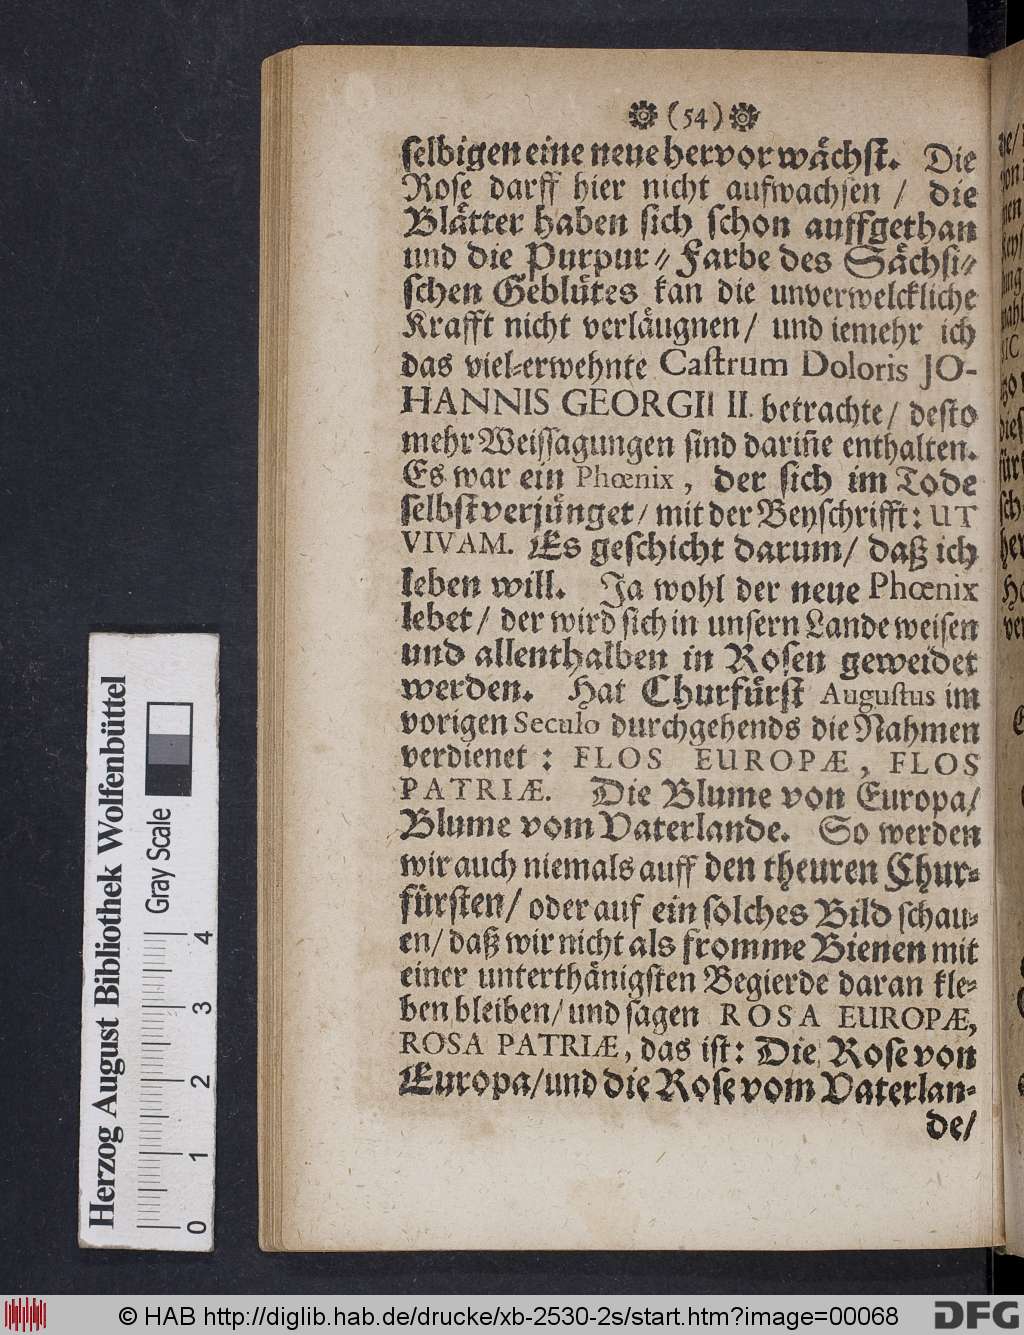 (54)
selbigen eine neue hervor wächst. Die
Rose darff hier nicht aufwachsen / die
Blätter haben sich schon auffgethan
und die Purpur⸗Farbe des Sächsi⸗
schen Geblütes kan die unverwelckliche
Krafft nicht verläugnen / und iemehr ich
das viel⸗erwehnte Castrum Doloris JO-
HANNIS GEORGII II. betrachte / desto
mehr Weissagungen sind dariñe enthalten.
Es war ein Phœnix, der sich im Tode
selbst verjünget / mit der Beyschrifft: UT
VIVAM. Es geschicht darum / daß ich
leben will. Ja wohl der neue Phœnix
lebet / der wird sich in unsern Lande weisen
und allenthalben in Rosen geweidet
werden. Hat Churfürst Augustus im
vorigen Seculo durchgehends die Nahmen
verdienet: FLOS EUROPÆ, FLOS
PATRIÆ. Die Blume von Europa /
Blume vom Vaterlande. So werden
wir auch niemals auff den theuren Chur⸗
fürsten / oder auf ein solches Bild schau⸗
en / daß wir nicht als fromme Bienen mit
einer unterthänigsten Begierde daran kle⸗
ben bleiben / und sagen ROSA EUROPÆ,
ROSA PATRIÆ, das ist: Die Rose von
Europa / und die Rose vom Vaterlan⸗
de /
Herzog August Bibliothek Wolfenbüttel
Gray Scale
0 1 2 3 4
© HAB http://diglib.hab.de/drucke/xb-2530-2s/start.htm?image=00068
DFG